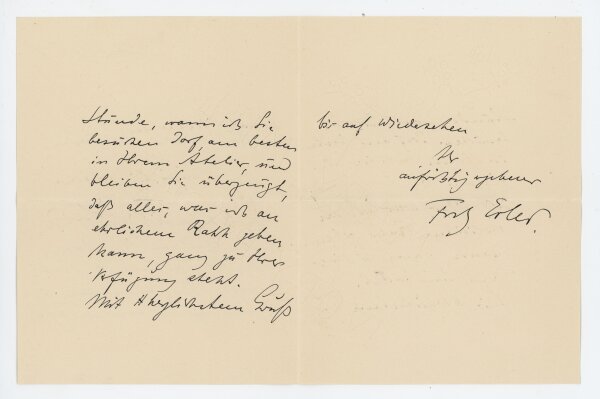 Stunde, wann ich Sie
besuchen darf, am besten
in Ihrem Atelier, und
bleiben Sie überzeugt,
daß alles, was ich an
ehrlichem Rath geben
kann, ganz zu Ihrer
Verfügung steht.
Mit herzlichstem Gruß
bis auf Wiedersehen
Ihr
aufrichtig ergebener
Fritz Erler.